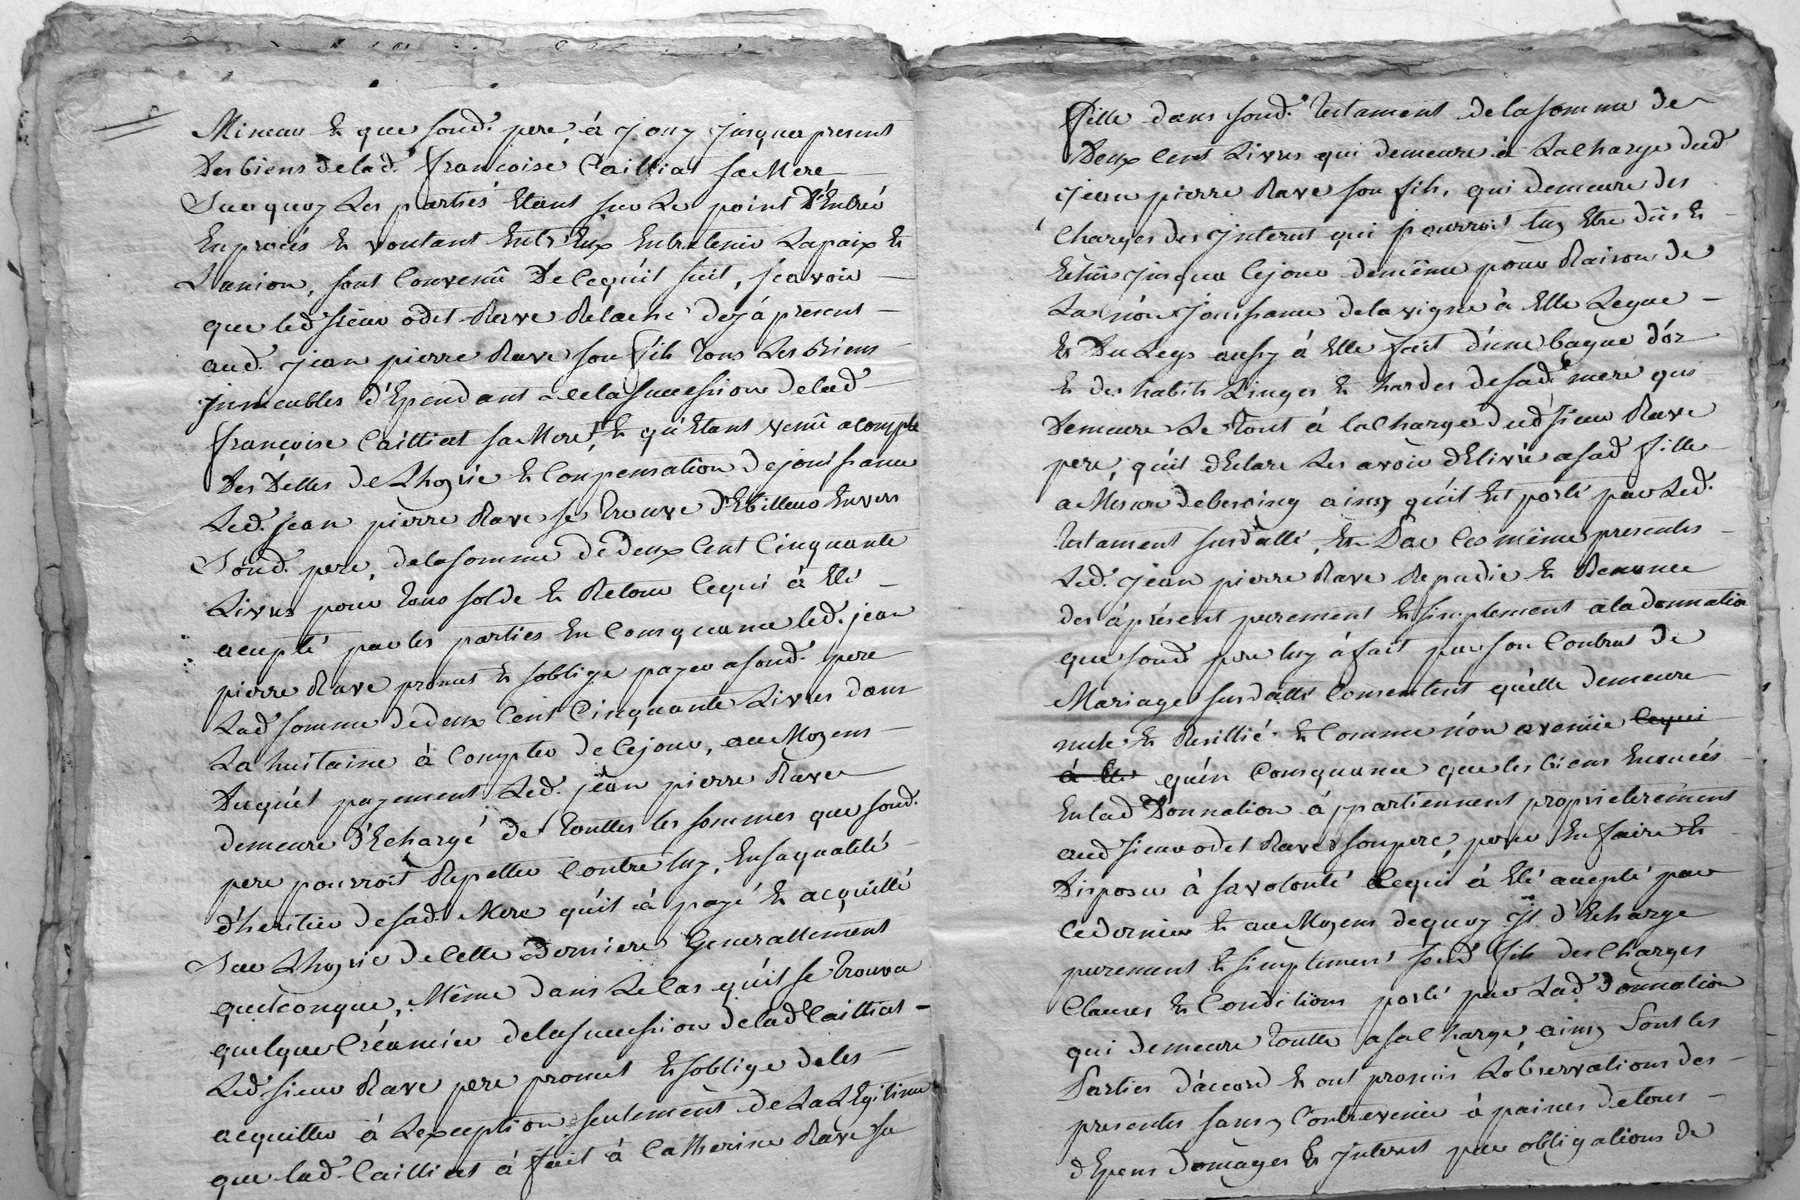 Mineau & que sond. pere à jouy jusqua present
Des biens delad. francoise Cailliat sa Mere
Sur quoy Les partiés Etant sur Le point D'Entrér
En procés & voulant Entr'Eux Entretenir Lapaix &
L'union, sont Convenû De Cequ'il suit, scavoir
que led sieur odet Rave Relache dejà present
aud. jean pierre Rave son fils tous Les Biens
jmmeubles d'Ependant dela succession delad
françoise Cailliat sa Mere, & qu'Etant venû a compte
Des Dettes de L'hoyrie & Compensation dejouissance
Led. jean pierre Rave se trouve D'Ebitteur Envers
Sond. pere, delasomme de deux Cent Cinquante
Livres pour tous solde & Retour Cequi à Eté
accepté par les parties En Consequance led. jean
pierre Rave promet & soblige payer a sond. pere
Lad somme dedeux Cent Cinquante Livres dans
La huitaine à Compter de Cejour, au Moyens
Duquél payement Led. jean pierre Rave
demeure d'Echargé de touttes les sommes que sond.
pere pourroit Repetter Contre luy, Ensaqualité
d'heritier desad. Mere qu'il à payé & acquitté
Sur L'hoyrie de Cette derniere Generallement
quelconque, Même dans Le Cas qu'il se trouva
quelque Créancier dela succession delad Cailliat
Led sieur Rave pere promet & soblige deles
acquitter à L'exception seulement de La Legitime
que lad. Cailliat à fait à Catherine Rave sa
fille dans sond. testament delasomme de
Deux Cent Livres qui demeure à La Charge dud
jean pierre Rave son fils, qui demeure des
Charges des jnterest qui pourroit luy Etre dûs &
Echûs jusqua Cejour demême pour Raison de
La nón jouissance delavigne à Elle Legue
& Du Legs aussy à Elle fait d'une bague d'or
& des habits Linges & hardes desad. mere qui
Demeure Le tout à laCharge dud sieur Rave
pere, qu'il dEclare Les avoir dElivré asad fille
a Mesure debesoing ainsy qu'il Est porté par Led.
testament susdatté, Et Par Ces même presentes
Led. jean pierre Rave Repudie & Renonce
des àprésent purement & simplement à ladonnation
que sond pere luy à fait par son Contrat de
Mariage susdatté Consentent qu'elle demeure
nule & Resillié & Comme nón avenüe Cequi
à Eté qu'en Consequance que les biens Enoncés
En lad Donnation àppartiennent proprieterement
aud sieur odet Rave son pere, pour En faire &
Disposer à savolonté Cequi à Eté accepté par
Cedernier & au Moyens dequoy jl d'Echarge
purement & simplement sond fils des Charges
Clauses & Conditions porté par Lad Donnation
qui demeure toutte asaCharge, ainsy Sont les
Parties d'accord & ont promis L'observations des
presentes sans y Contrevenir à paines detous
dEpens Domages & jnterest par obligations de